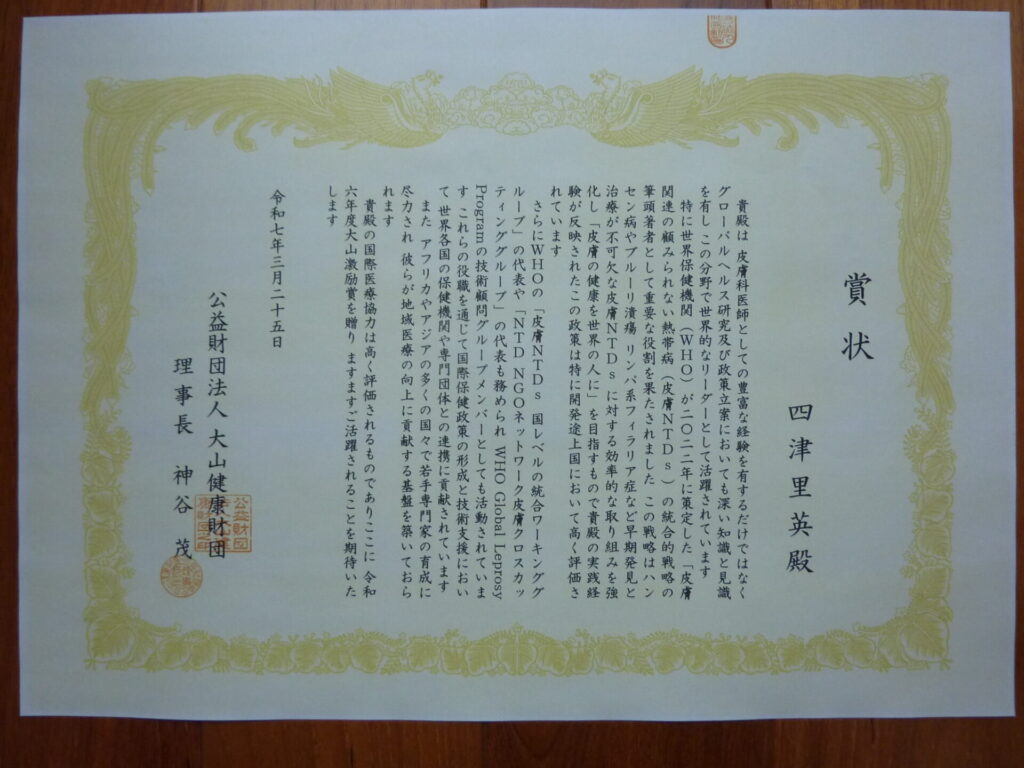 賞状
四津里英殿
貴殿は 皮膚科医師としての豊富な経験を有するだけではなく
グローバルヘルス研究及び政策立案においても深い知識と見識
を有し この分野で世界的なリーダーとして活躍されています
特に世界保健機関（WHO）が二〇二二年に策定した「皮膚
関連の顧みられない熱帯病（皮膚NTDs）の統合的戦略の
筆頭著者として重要な役割を果たされました この戦略はハン
セン病やブルーリ潰瘍 リンパ系フィラリア症など早期発見と
治療が不可欠な皮膚NTDsに対する効率的な取り組みを強
化し「皮膚の健康を世界の人に」を目指すもので貴殿の実践経
験が反映されたこの政策は特に開発途上国において高く評価さ
れています
さらにWHOの「皮膚NTDs 国レベルの統合ワーキンググ
ループ」の代表や「NTD NGOネットワーク皮膚クロスカッ
ティンググループ」の代表も務められ WHO Global Leprosy
Programの技術顧問グループメンバーとしても活動されていま
す これらの役職を通じて国際保健政策の形成と技術支援におい
て 世界各国の保健機関や専門団体との連携に貢献されています
また アフリカやアジアの多くの国々で若手専門家の育成に
尽力され 彼らが地域医療の向上に貢献する基盤を築いておら
れます
貴殿の国際医療協力は高く評価されるものでありここに 令和
六年度大山激励賞を贈り ますますご活躍されることを期待いた
します
令和七年三月二十五日
公益財団法人 大山健康財団
理事長 神谷 茂